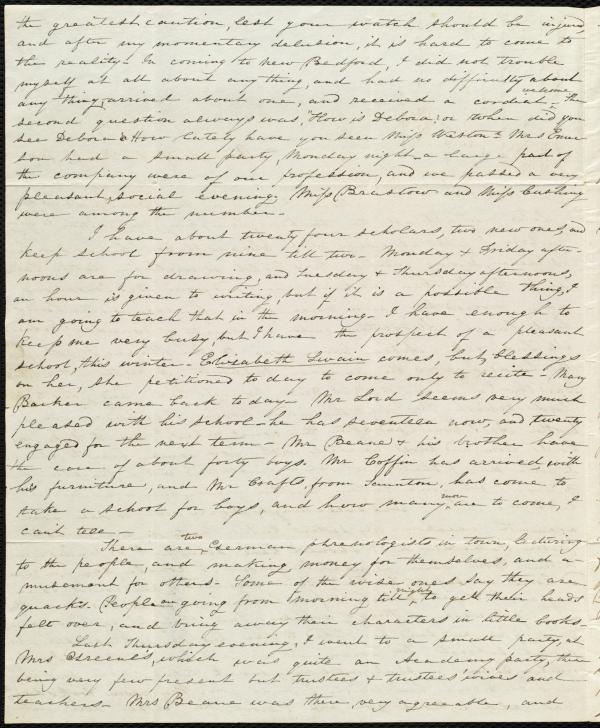 the greatest caution, lest your watch should be injured,
and after my momentary delusion, it is hard to come to
the reality - In coming to New Bedford, I did not trouble
myself at all about any thing, and had no difficulty about
any thing, arrived about one, and received a cordial welcome - The
second question always was, "How is Debora? or When did you
see Debora & How lately have you seen Miss Weston? Mrs Emer
son had a small party, Monday night - a large part of
the company were of our profession, and we passed a very
pleasant, social evening. Miss Brastow and Miss Cushing
were among the number -
I have about twenty four scholars, two new ones, and
keep school from nine till two - Monday & Friday after-
noons are for drawing, and Tuesday & Thursday afternoons,
an hour is given to writing, but if it is a possible thing, I
am going to teach that in the morning - I have enough to
keep me very busy but I have the prospect of a pleasant
school, this winter - Elisabeth Swain comes, but, blessings
on her, she petitioned to day to come only to recite - Mary
Barker came back to day - Mr Lord seems very much
pleased with his school - he has seventeen now, and twenty
engaged for the next term - Mr Beane & his brother have
the care of about forty boys. Mr Coffin has arrived, with
his furniture, and Mr Crafts, from Taunton, has come to
take a school for boys, and how many more are to come, I
can't tell -
There are two German phrenologists in town, lecturing
to the people, and making money for themselves, and a-
musement for others - Some of the wise ones say they are
quacks. People are going from morning till night, to get their heads
felt over, and bring away their characters in little books.
Last Thursday evening, I went to a small party, at
Mrs Greene's, which was quite an Academy party, there
being very few present but trustees & trustees' wives and
teachers - Mrs Beane was there, very agreeable, and